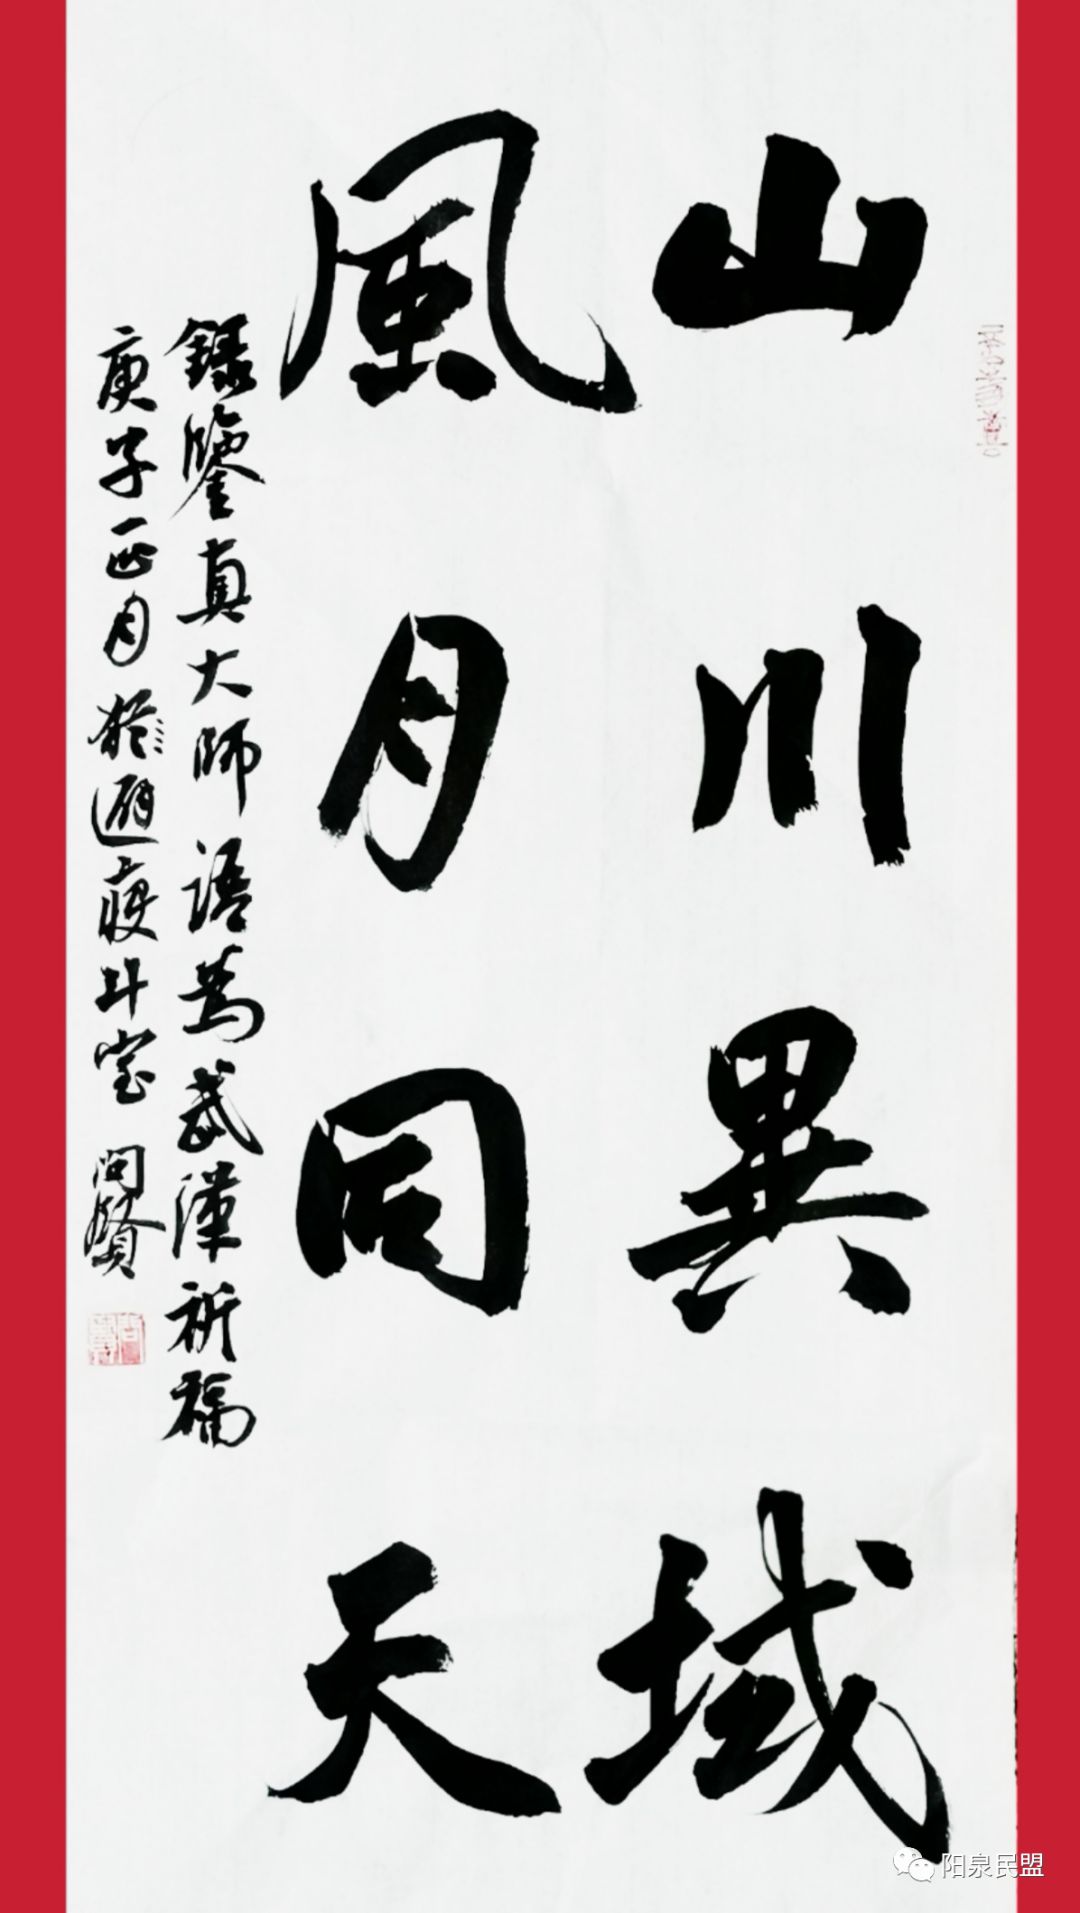 山川異域
風月同天
錄鑒真大師語為武漢祈福
庚子正月於避疫斗室 問賢
阳泉民盟